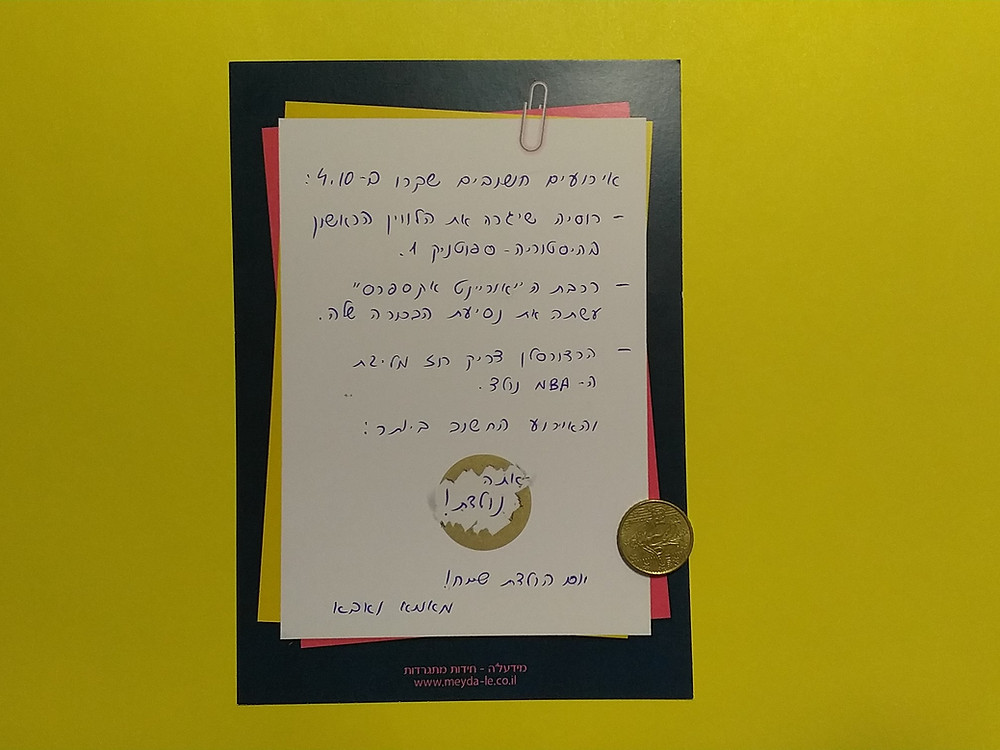 אירועים חשובים שקרו ב-4.10:
- רוסיה שיגרה את הלווין הראשון
בהיסטוריה - ספוטניק 1.
- רכבת ה"אוריינט אקספרס"
עשתה את נסיעת הבכורה שלה.
- הכדורסלן דריק רוז מליגת
ה-NBA נולד.
והאירוע החשוב ביותר:
אתה
נולדת!
יום הולדת שמח!
מאמא ואבא
מידעל'ה - חידות מתגרדות
www.meyda-le.co.il